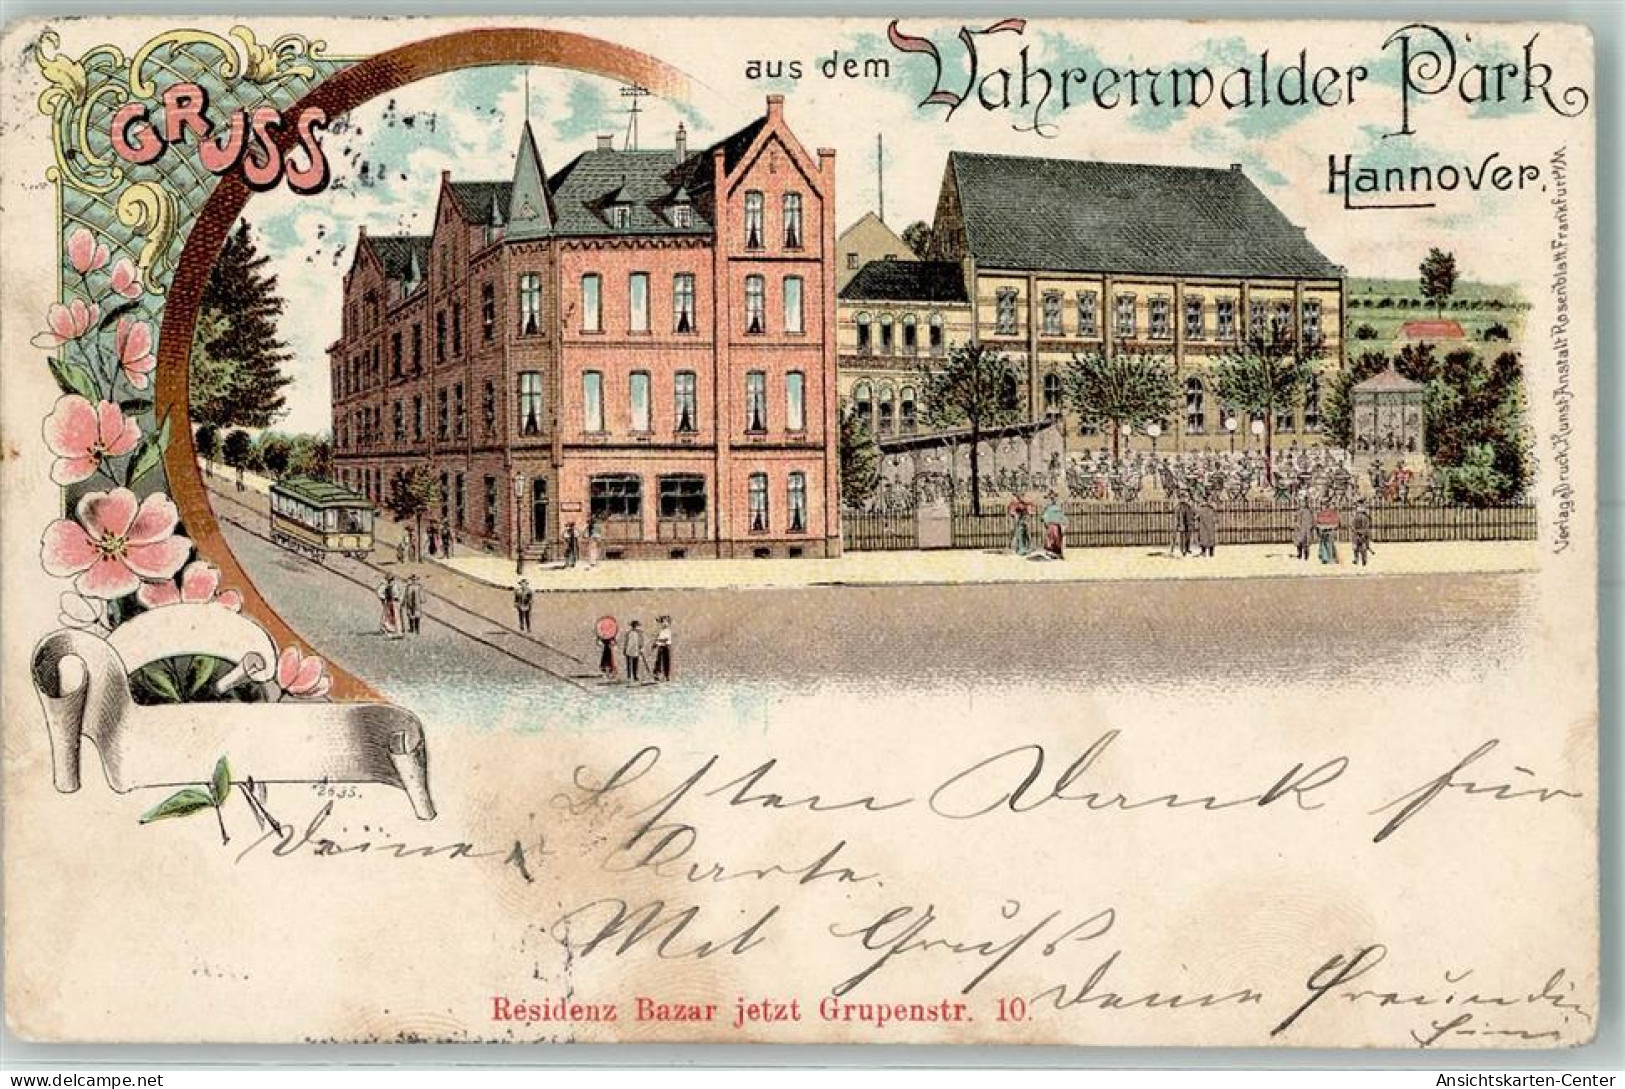 GRUSS
aus dem Vahrenwalder Park
Hannover.
Verlag u Druck. Kunst-Anstalt Rosenblatt Frankfurt a/M.
2635.
Esten Dank für
Deine Karte.
Mit Gruß
Deine Freundin
Residenz Bazar jetzt Grupenstr. 10.
Ansichtskarten-Center